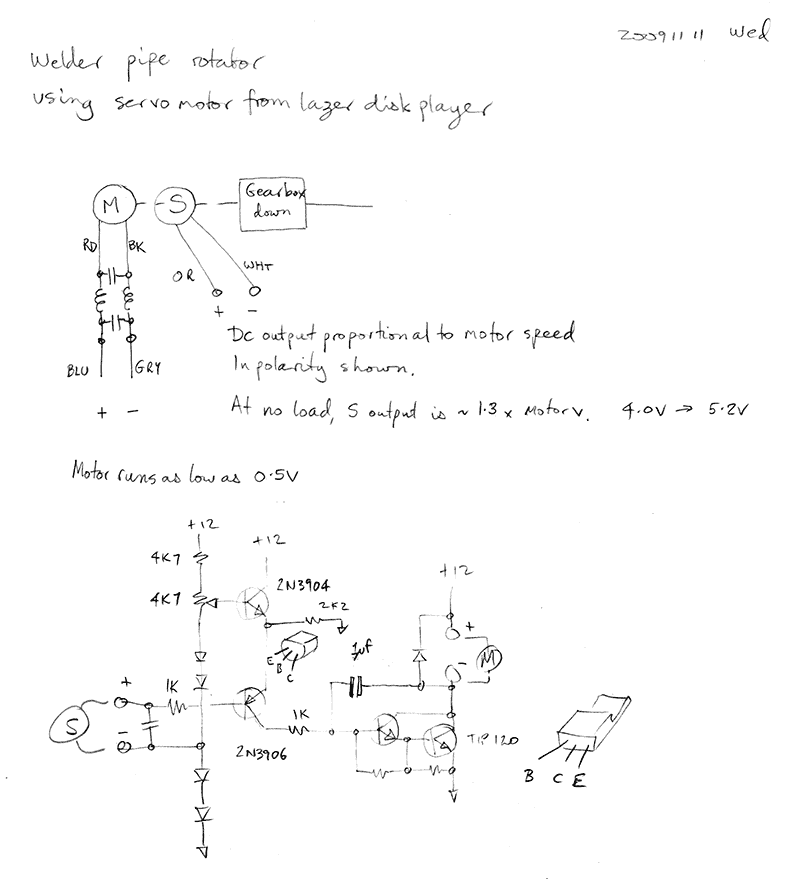 20091111 Wed
Welder pipe rotator
using servo motor from lazer disk player
M
S
Gearbox
down
RD
BK
OR
WHT
+
-
DC output proportional to motor speed
In polarity shown.
BLU
GRY
+ -
At no load, S output is ~ 1.3 x Motor V. 4.0V → 5.2V
Motor runs as low as 0.5V
+12
+12
4K7
2N3904
+12
4K7
2K2
+
E
B
C
1uf
-
M
+
1K
S
-
1K
TIP 120
2N3906
B C E